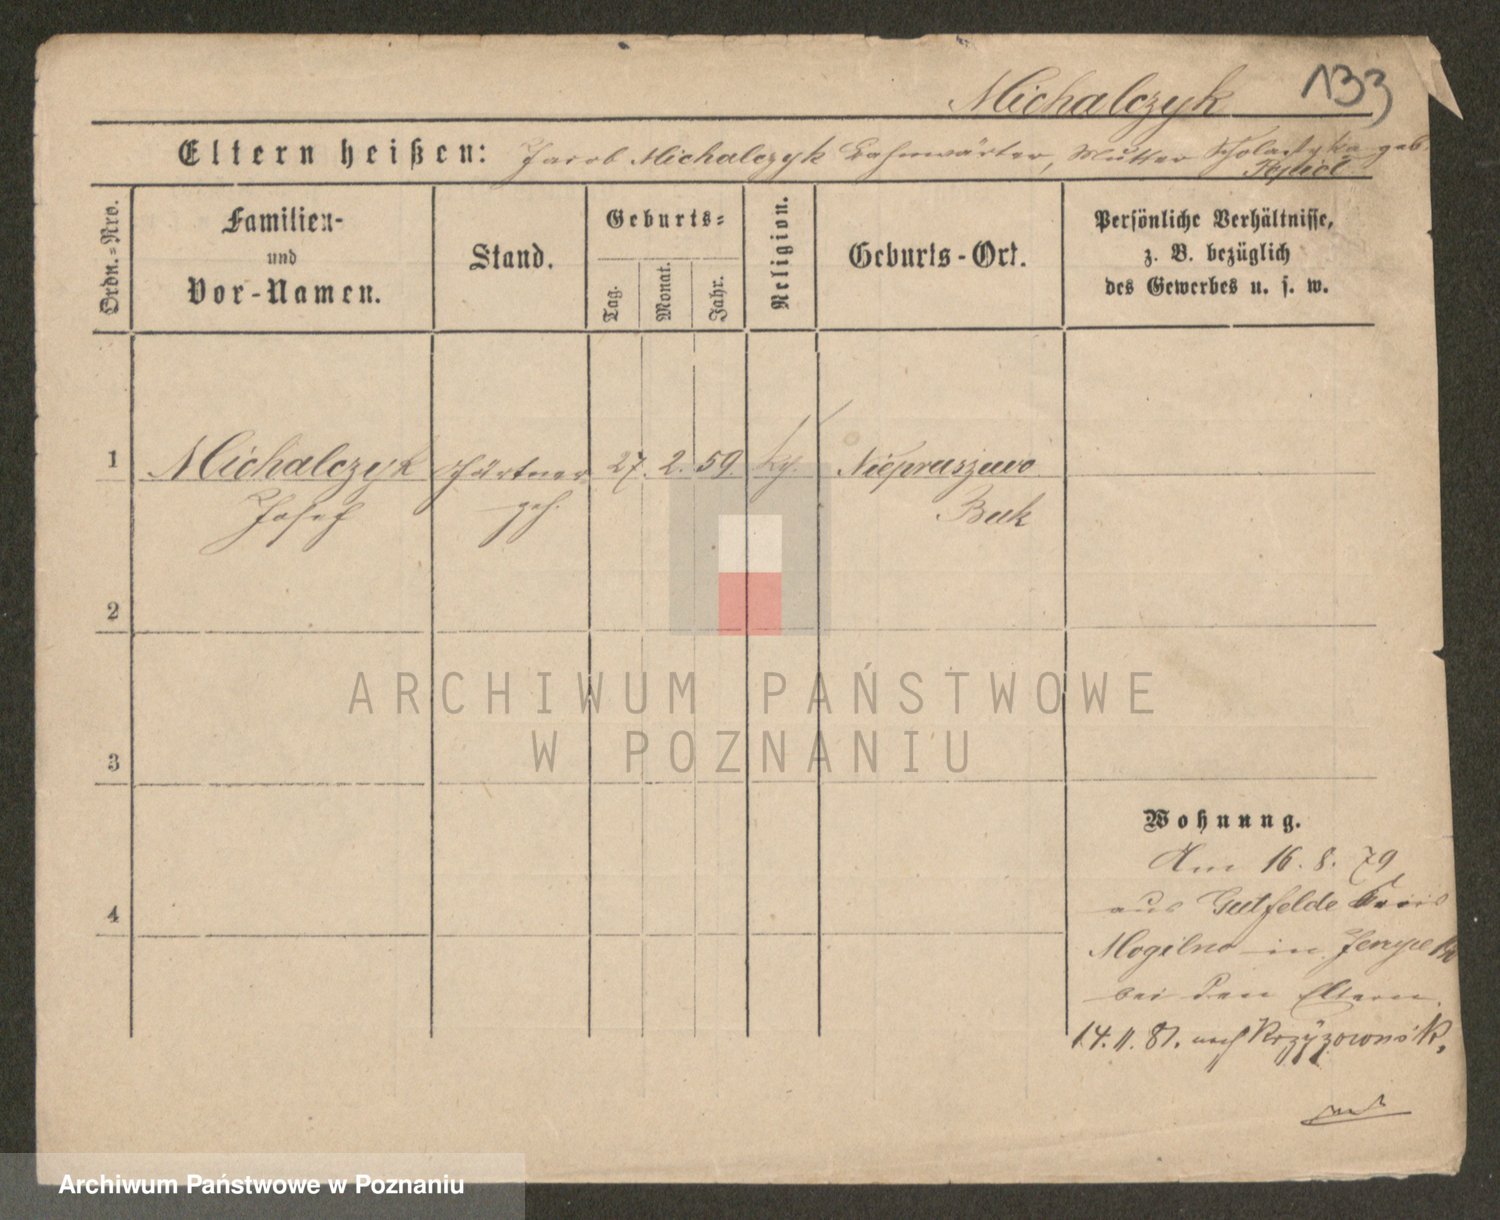 Michalczyk 133
Eltern heißen: Jacob Michalczyk Bahnwärter, Mutter Scholastyka geb.
Ordn.=Nro.
Familien-
und
Vor-Namen.
Stand.
Geburts=
Tag.
Monat.
Jahr.
Religion.
Geburts-Ort.
Persönliche Verhältnisse,
z. B. bezüglich
des Gewerbes u. s. w.
1 Michalczyk Gärtner 27. 2. 59. Niepruszewo
Josef geh. Buk
2
3
4
Wohnung.
Am 16. 8. 79
aus Gutfelde Kreis
Mogilno in
bei den Eltern.
14. 11. 81. nach
ARCHIWUM PAŃSTWOWE
W POZNANIU
Archiwum Państwowe w Poznaniu